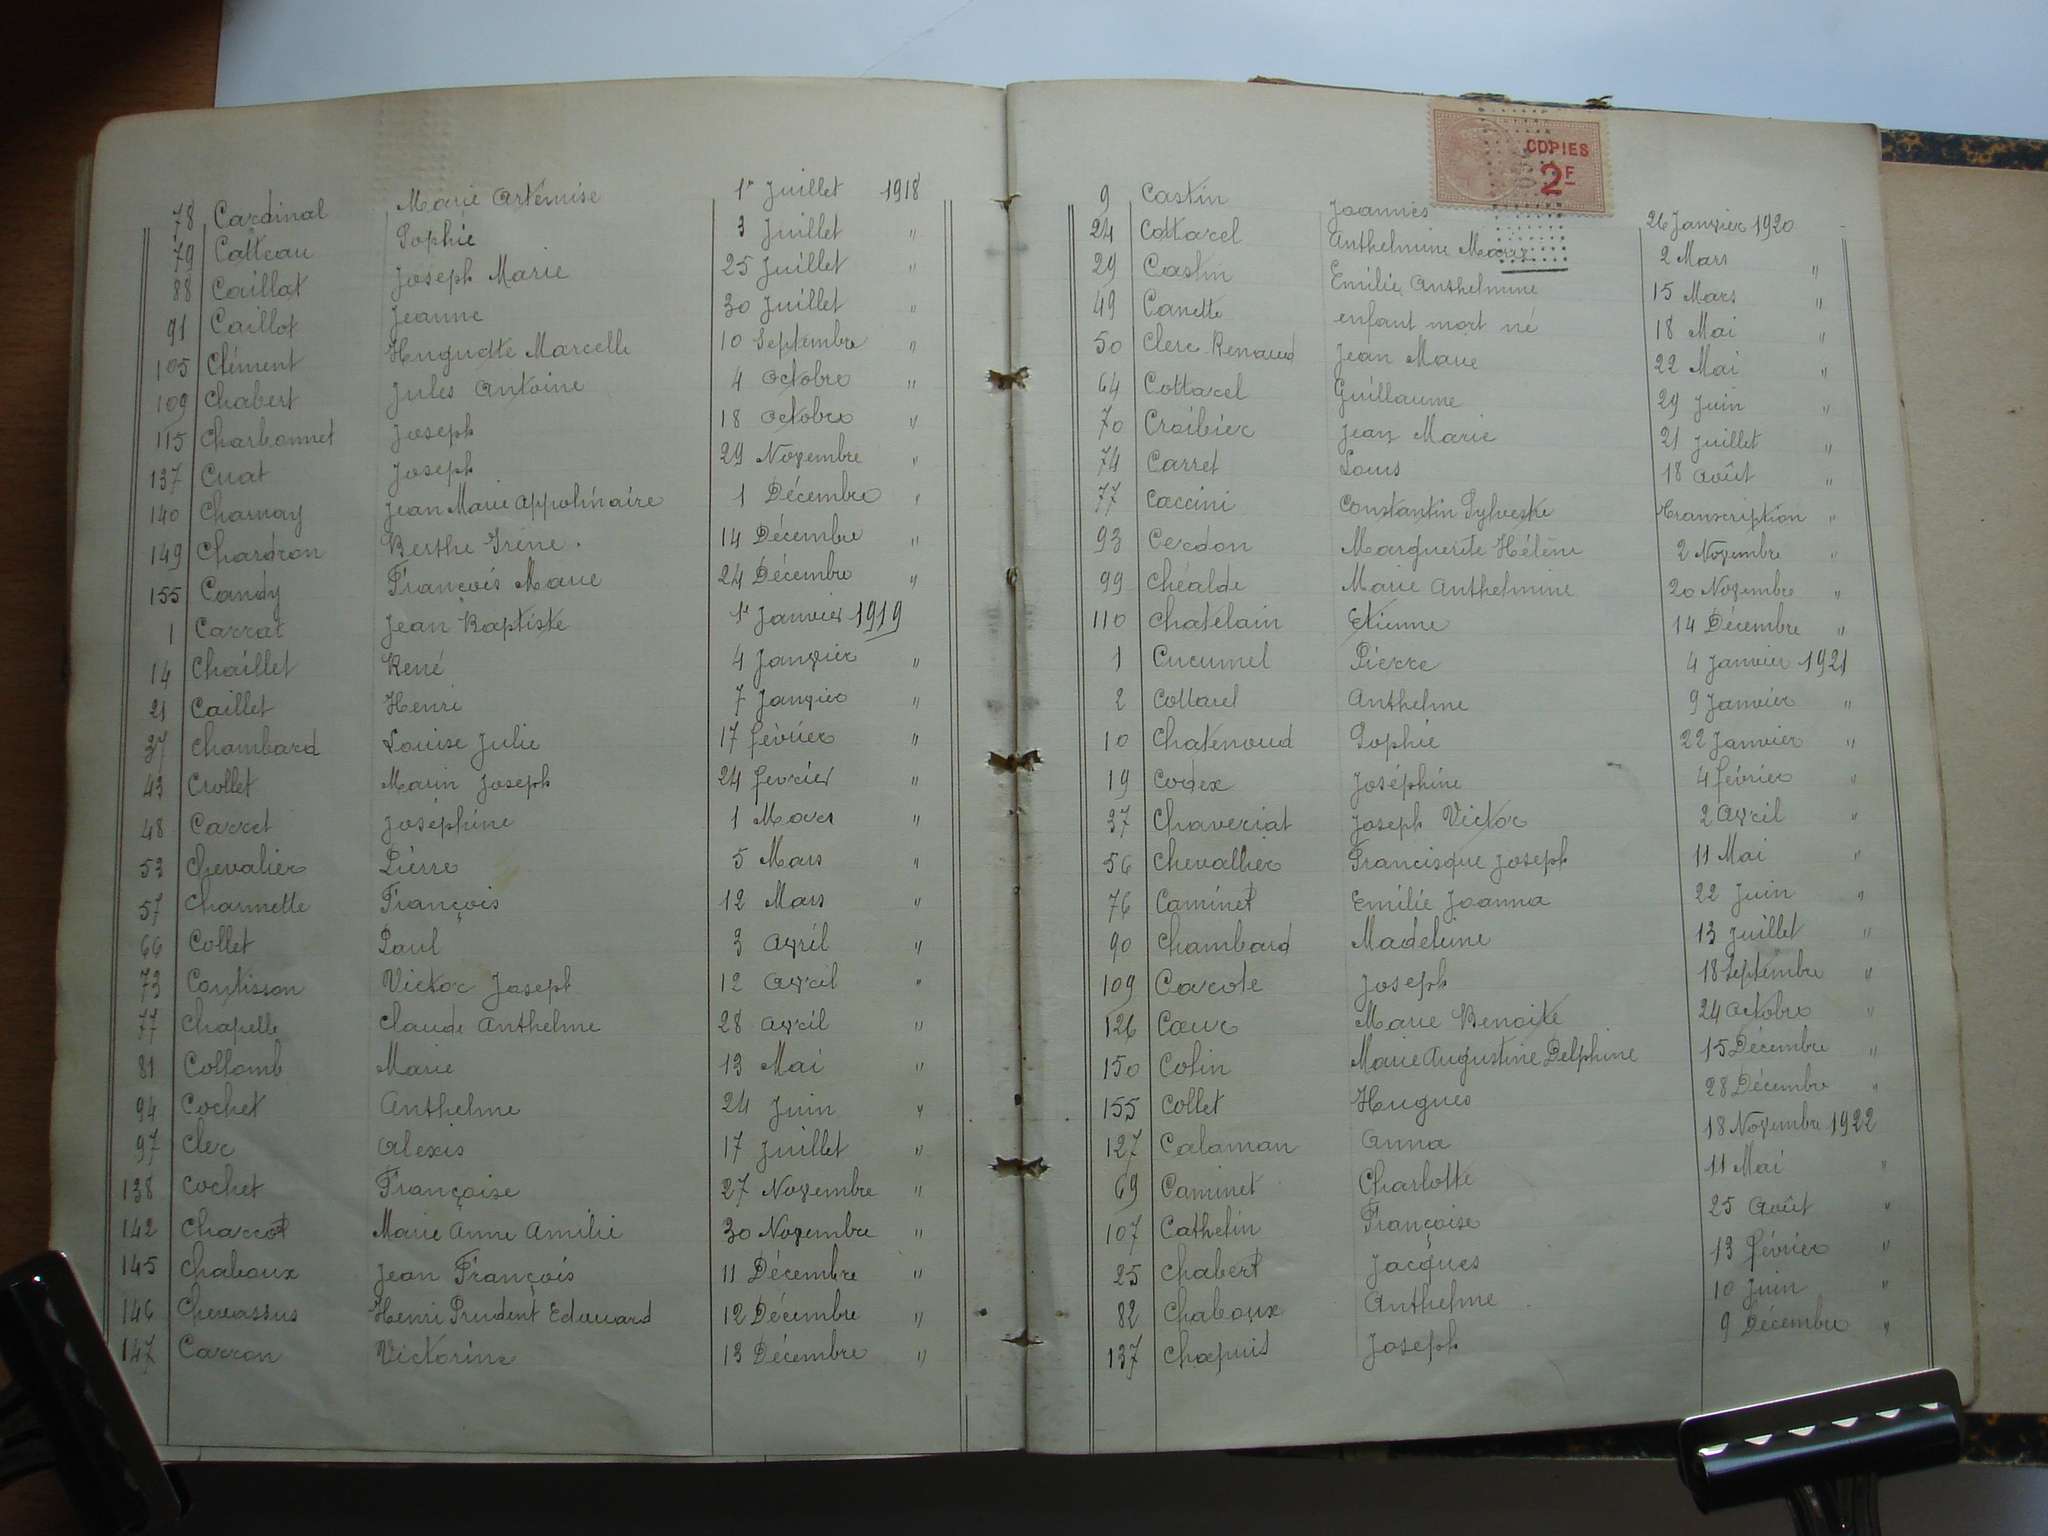 78 Cardinal Marie Artémise 1er Juillet 1918
79 Catteau Sophie 3 Juillet "
88 Caillat Joseph Marie 25 Juillet "
91 Caillot Jeanne 30 Juillet "
105 Clément Huguette Marcelle 10 Septembre "
109 Chabert Jules Antoine 4 Octobre "
115 Charbonnet Joseph 18 Octobre "
137 Cuat Joseph 29 Novembre "
140 Charnay Jean Marie Appolinaire 1 Décembre "
149 Chardron Berthe Irène. 14 Décembre "
155 Candy François Marie 24 Décembre "
1 Carrat Jean Baptiste 1er Janvier 1919
14 Chaillet René 4 Janvier "
21 Caillet Henri 7 Janvier "
37 Chambard Louise Julie 17 février "
43 Crollet Marin Joseph 24 fevrier "
48 Carret Joséphine 1 Mars "
53 Chevalier Pierre 5 Mars "
57 Charmette François 12 Mars "
66 Collet Paul 3 Avril "
73 Contisson Victor Joseph 12 Avril "
77 Chapelle Claude Anthelme 28 Avril "
81 Collomb Marie 13 Mai "
94 Cochet Anthelme 24 Juin "
97 Clerc Alexis 17 Juillet "
138 Cochet Françoise 27 Novembre "
142 Charrot Marie Anne Amélie 30 Novembre "
145 Chaboux Jean François 11 Décembre "
146 Chevassus Henri Prudent Edouard 12 Décembre "
147 Carron Victorine 13 Décembre "
COPIES
2F
9 Castin Joannès 26 Janvier 1920
24 Cottarel Anthelmine Marie 2 Mars "
29 Castin Emilie Anthelmine 15 Mars "
49 Canette enfant mort né 18 Mai "
50 Clerc Renaud Jean Marie 22 Mai "
64 Cottarel Guillaume 29 Juin "
70 Croibier Jean Marie 21 Juillet "
74 Carret Louis 18 Août "
77 Caccini Constantin Sylvestre Transcription "
93 Cerdon Marguerite Hélène 2 Novembre "
99 Chéalde Marie Anthelmine 20 Novembre "
110 Chatelain Etienne 14 Décembre "
1 Cucumel Pierre 4 Janvier 1921
2 Cottarel Anthelme 9 Janvier "
10 Chatenoud Sophie 22 Janvier "
19 Codex Joséphine 4 février "
37 Chaveriat Joseph Victor 2 Avril "
56 Chevallier Francisque Joseph 11 Mai "
76 Caminet Emilie Joanna 22 Juin "
90 Chambard Madeleine 13 Juillet "
109 Carote Joseph 18 Septembre "
126 Cœur Marie Benoite 24 Octobre "
150 Colin Marie Augustine Delphine 15 Décembre "
155 Collet Hugues 28 Décembre "
127 Calaman Anna 18 Novembre 1922
69 Caminet Charlotte 11 Mai "
107 Cathelin Françoise 25 Août "
25 Chabert Jacques 13 février "
82 Chaboux Anthelme 10 Juin "
137 Chapuis Joseph 9 Décembre "